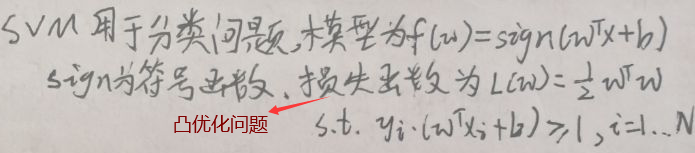 SVM用于分类问题,模型为f(w)=sign(wᵀx+b)
sign为符号函数、损失函数为L(w)=½wᵀw
凸优化问题 s.t. yᵢ·(wᵀxᵢ+b)≥1,i=1...N